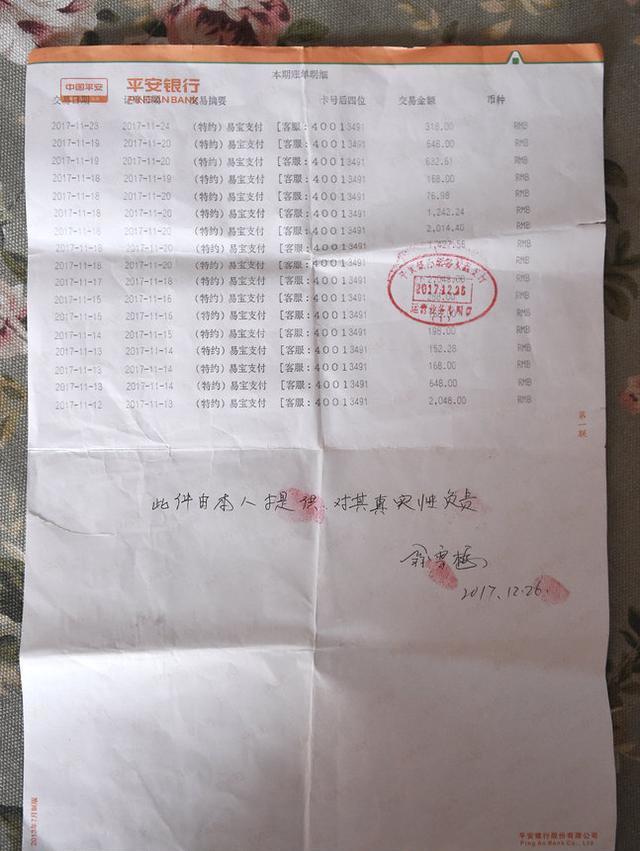 中国平安 平安银行
PINGAN BANK
本期账单明细
交易日期 记账日期 交易摘要 卡号后四位 交易金额 币种
2017-11-23 2017-11-24 (特约)易宝支付 [客服:40013491 318.00 RMB
2017-11-19 2017-11-20 (特约)易宝支付 [客服:40013491 648.00 RMB
2017-11-19 2017-11-20 (特约)易宝支付 [客服:40013491 632.61 RMB
2017-11-18 2017-11-19 (特约)易宝支付 [客服:40013491 168.00 RMB
2017-11-18 2017-11-20 (特约)易宝支付 [客服:40013491 76.98 RMB
2017-11-18 2017-11-20 (特约)易宝支付 [客服:40013491 1,242.24 RMB
2017-11-18 2017-11-20 (特约)易宝支付 [客服:40013491 2,014.40 RMB
2017-11-18 2017-11-20 (特约)易宝支付 [客服:40013491 RMB
2017-11-18 2017-11-20 (特约)易宝支付 [客服:40013491 RMB
2017-11-17 2017-11-18 (特约)易宝支付 [客服:40013491 2,048.00 RMB
2017-11-15 2017-11-16 (特约)易宝支付 [客服:40013491 RMB
2017-11-15 2017-11-16 (特约)易宝支付 [客服:40013491 RMB
2017-11-14 2017-11-15 (特约)易宝支付 [客服:40013491 198.00 RMB
2017-11-13 2017-11-14 (特约)易宝支付 [客服:40013491 152.28 RMB
2017-11-13 2017-11-14 (特约)易宝支付 [客服:40013491 168.00 RMB
2017-11-13 2017-11-14 (特约)易宝支付 [客服:40013491 648.00 RMB
2017-11-12 2017-11-13 (特约)易宝支付 [客服:40013491 2,048.00 RMB
2017.12.26
第一联
此件由本人提供,对其真实性负责
2017.12.26.
平安银行股份有限公司
Ping An Bank Co., Ltd